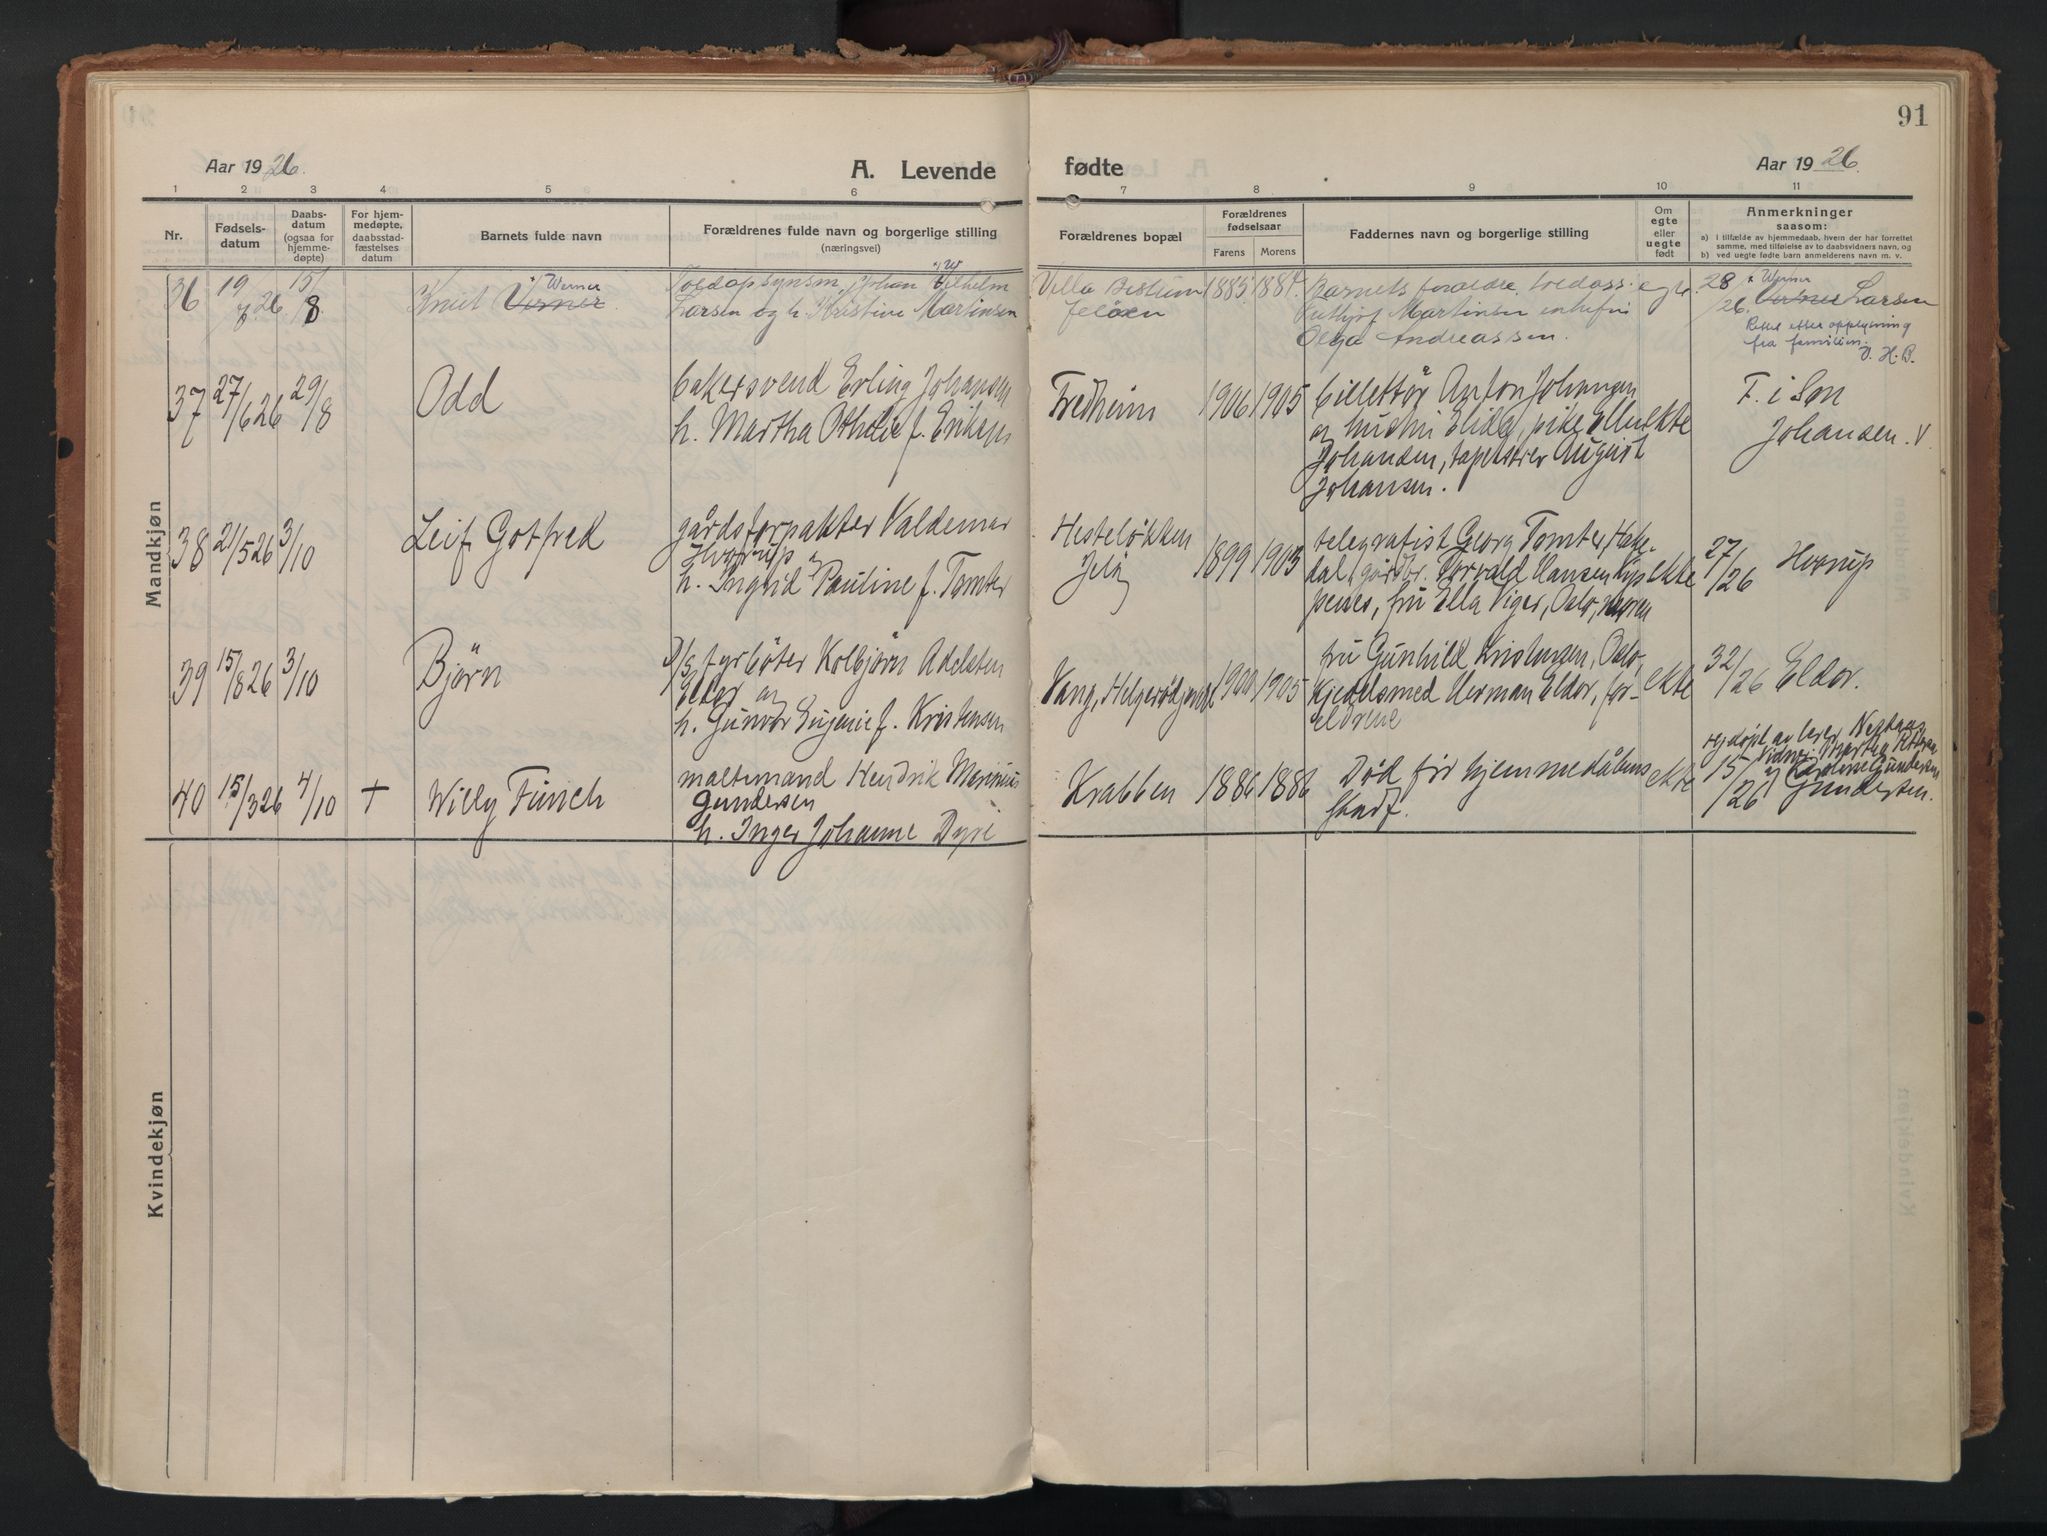 91
Aar 1926.
A. Levende
fødte
Aar 1926.
1 2 3 4 5 6 7 8 9 10 11
Nr.
Fødsels-
datum
Daabs-
datum
(ogsaa for
hjemme-
døpte)
For hjem-
medøpte,
daabsstad-
fæstelses
datum
Barnets fulde navn
Forældrenes fulde navn og borgerlige stilling
(næringsvei)
Forældrenes bopæl
Forældrenes
fødselsaar
Farens Morens
Faddernes navn og borgerlige stilling
Om
egte
eller
uegte
født
Anmerkninger
saasom:
a) i tilfælde av hjemmedaab, hvem der har forrettet
samme, med tilføielse av to daabsvidners navn, og
b) ved uegte fødte barn anmelderens navn m. v.
Mandkjøn
36
19/
26
15/8
* Werner
Knut Verner
*W
Toldopsynsm. Johan Vilhelm
Larsen og h. Kristine Martinsen
Villa
Jeløen
1885 1884
Barnets foreldre, toldass:
Martinsen enkefru
Olga Andreassen.
egte
28/26.
* Werner
Verner Larsen
Rettet etter opplysning
fra familien.
H. B.
37
27/6 26
29/8
Odd
bakersvend Erling Johansen
h. Martha Othelie f. Eriksen
Fredheim
1906 1905
billettør Anton Johansen
og hustru pike
Johansen, tapetserer August
Johansen.
ekte
F. i Son
Johansen. V
38
21/5 26
3/10
Leif Gotfred
gårdsforpakter Valdemar
Hvorup og
h. Ingrid Pauline f. Tomter
Hesteløkken
Jeløy
1899 1903
telegrafist Georg Tomter, Hake-
dal, gårdbr. Torvald Hansen Kip-
penes, fru Ella Viger, Oslo, moren
ekte
27/26
Hvorup
39
15/8 26
3/10
Bjørn
D/S fyrbøter Kolbjørn Adelsten
Eldor og
h. Gunvor Eugenie f. Kristensen
Vang, Helgerødgjerdet
1900 1905
fru Gunhild Kristensen, Oslo,
Kjedelsmed Herman Eldor, for-
eldrene
ekte
32/26
Eldor.
40
15/3 26
4/10
+
Willy Finch
maltemand Hendrik Marinius
Gundersen
h. Inger Johanne Dyre
Krabben
1886 1886
Død før hjemmedåbens
stadf.
ekte
15/26
Hjdøpt av lærer
Vidner: Martha
Gundersen
Gundersen.
Kvindekjøn